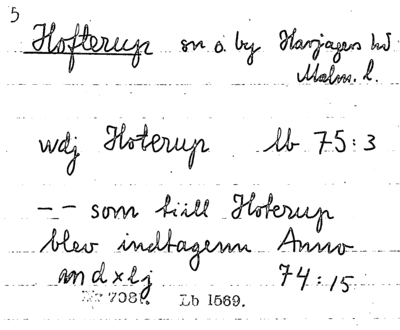 5
Hofterup sn o. by Harjagers hd
Malm. l.
wdj Hoterup lb 75:3
-- som tiill Hoterup
blev indtagenn Anno
md x lj 74:15
Lb 1569.